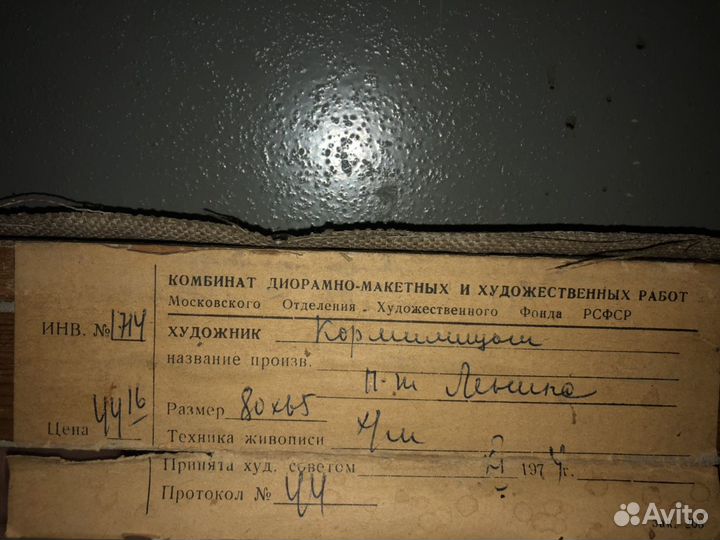 КОМБИНАТ ДИОРАМНО-МАКЕТНЫХ И ХУДОЖЕСТВЕННЫХ РАБОТ
Московского Отделения Художественного Фонда РСФСР
ИНВ. № 1714
ХУДОЖНИК
название произв.
п-т Ленина
Цена 44 16
Размер 80х65
Техника живописи х/м
Принята худ. советом 1974г.
Протокол № 44
Avito